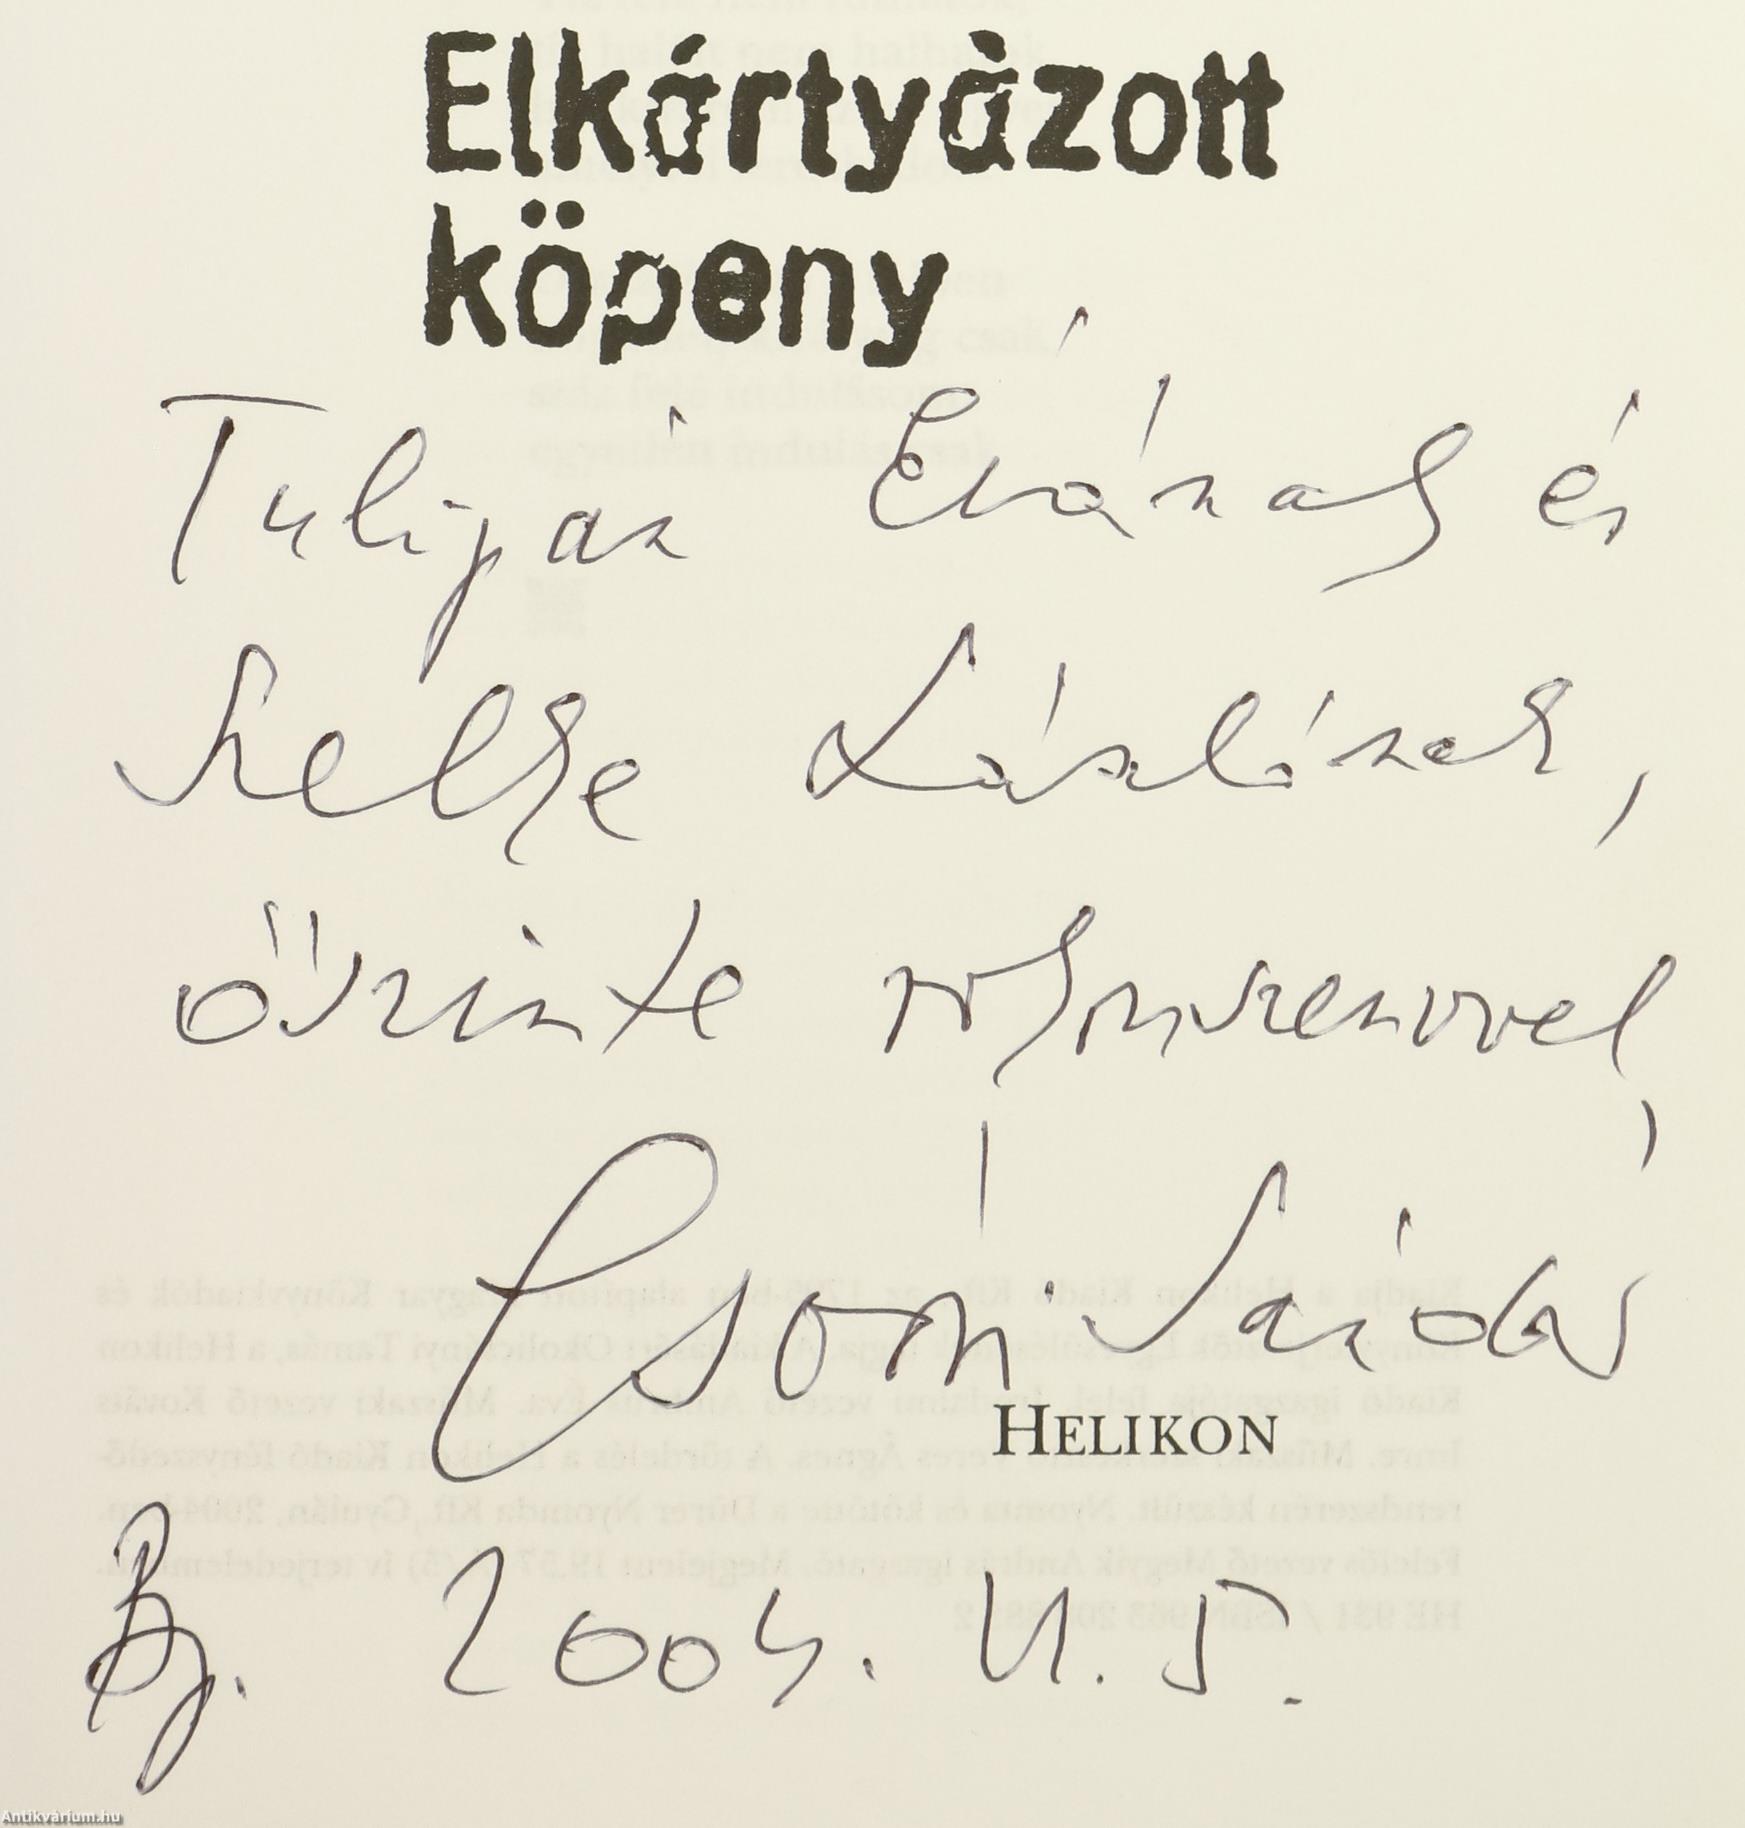 Elkártyázott
köpeny
Tulipán Évának és
Szelke Lászlónak,
őszinte rokonszenvvel,
Csoóri Sándor
HELIKON
Bp. 2004. VI. 5.
Antikvárium.hu